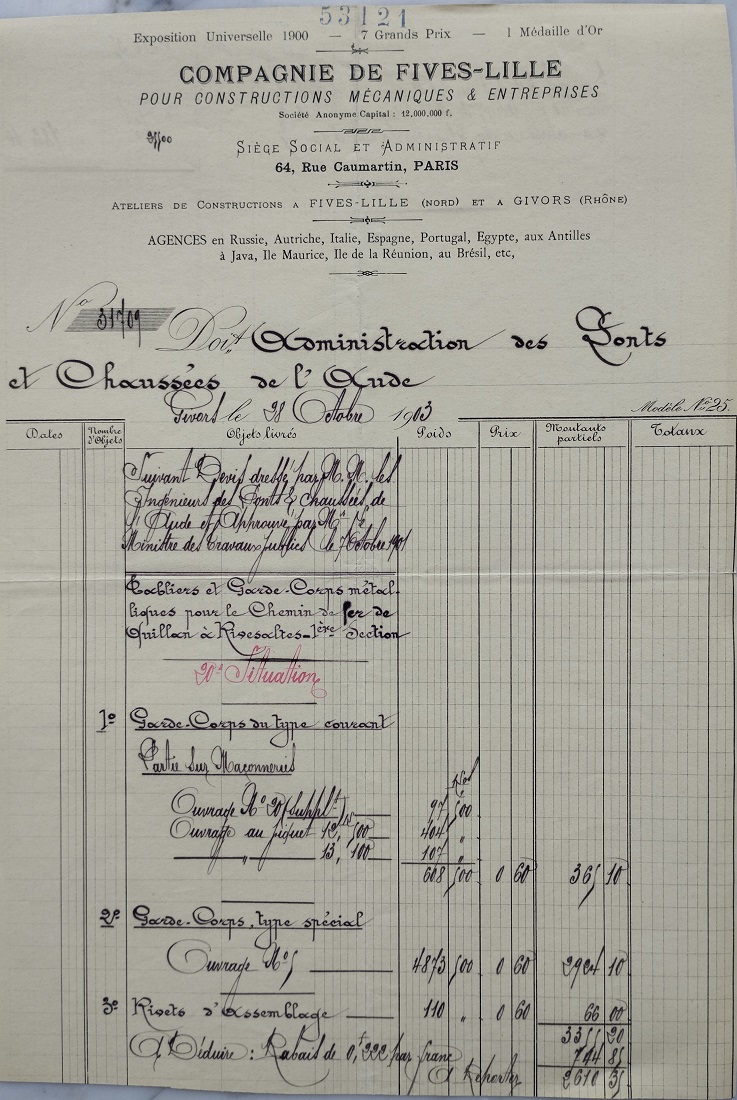 53121
Exposition Universelle 1900 — 7 Grands Prix — 1 Médaille d'Or
COMPAGNIE DE FIVES-LILLE
POUR CONSTRUCTIONS MÉCANIQUES & ENTREPRISES
Société Anonyme Capital : 12,000,000 f.
SIÈGE SOCIAL ET ADMINISTRATIF
64, Rue Caumartin, PARIS
ATELIERS DE CONSTRUCTIONS A FIVES-LILLE (NORD) ET A GIVORS (RHÔNE)
AGENCES en Russie, Autriche, Italie, Espagne, Portugal, Egypte, aux Antilles
à Java, Ile Maurice, Ile de la Réunion, au Brésil, etc,
No 31709 Doit Administration des Ponts
et Chaussées de l'Aude
Givors le 28 Octobre 1903
Modèle No 25.
Dates Nombre d'Objets Objets livrés Poids Prix Montants partiels Totaux
Suivant Devis dressé par M.M. les
Ingénieurs des Ponts & Chaussées de
l'Aude et Approuvé par Mr le
Ministre des Travaux publics le 7 Octobre 1901
Tabliers et Garde-Corps métal-
liques pour le Chemin de fer de
Quillan à Rivesaltes - 1ère Section
20e Situation
1o Garde-Corps du type courant
Partie sur Maçonneries
Ouvrage No 20 (supplt) 97 500
Ouvrage au piquet 12, 500 404 "
" 13, 100 107 "
608 500 0 60 365 10
2o Garde-Corps, type spécial
Ouvrage No 5 4873 500 0 60 2924 10
3o Rivets d'Assemblage 110 " 0 60 66 00
3355 20
A Déduire : Rabais de 0,f 222 par franc 744 85
A Reporter 2610 35